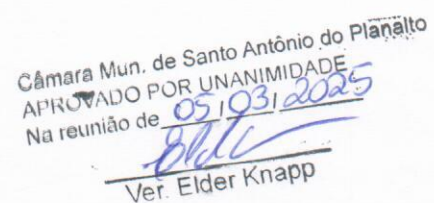 Câmara Mun. de Santo Antônio do Planalto
APROVADO POR UNANIMIDADE
Na reunião de 05/03/2025
Ver. Elder Knapp